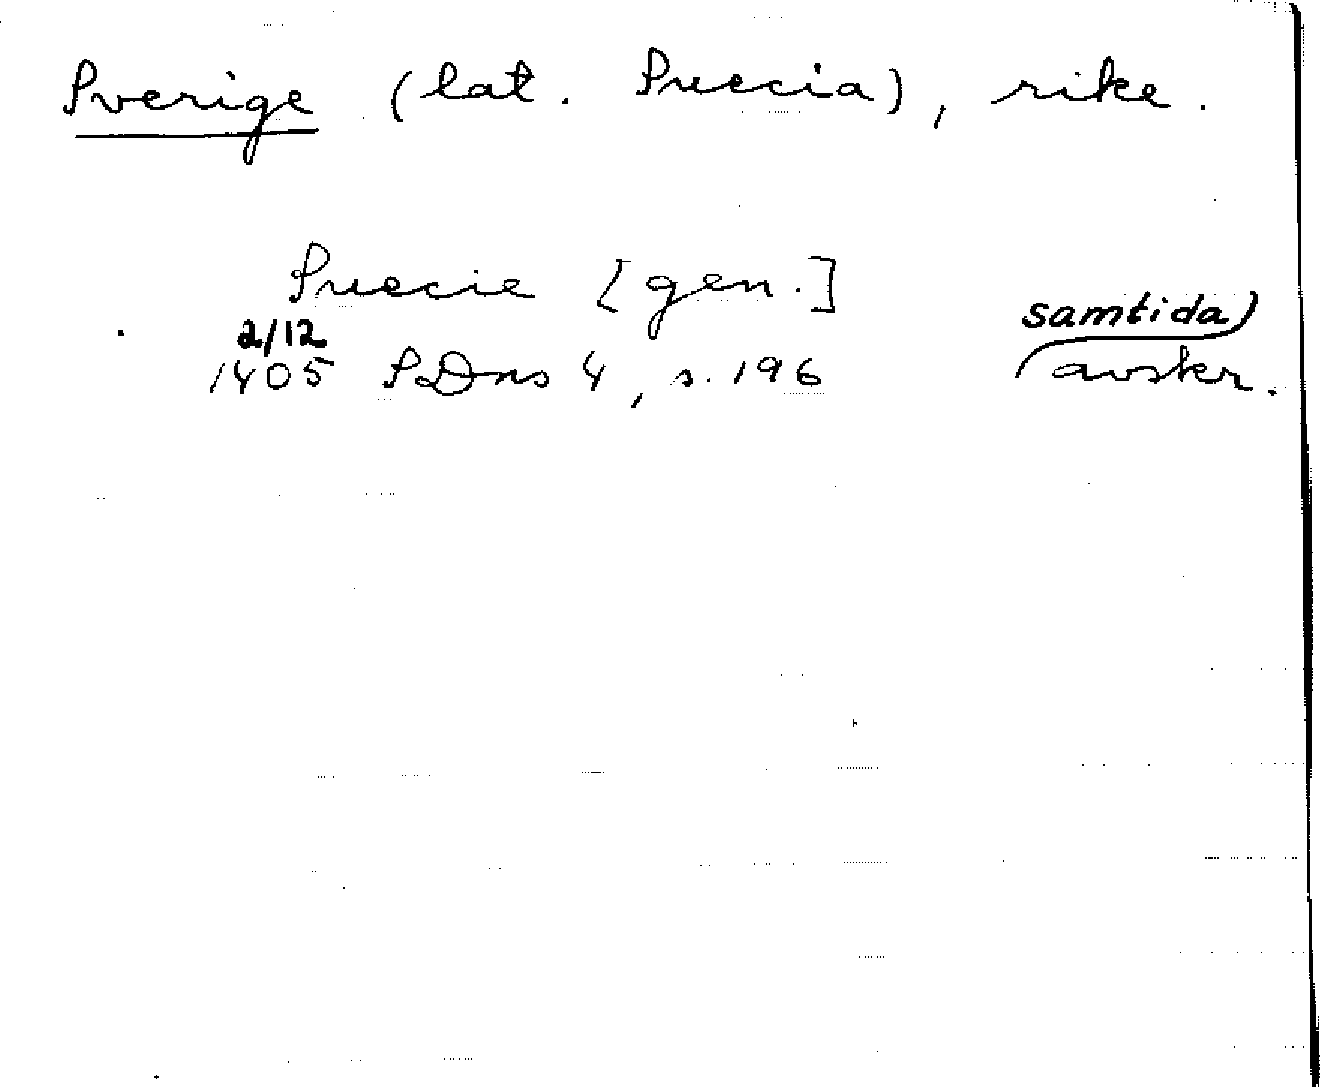 Sverige (lat. Suecia), rike.
Suecie [gen.]
2/12 samtida)
1405 SDns 4, s. 196 (avskr.